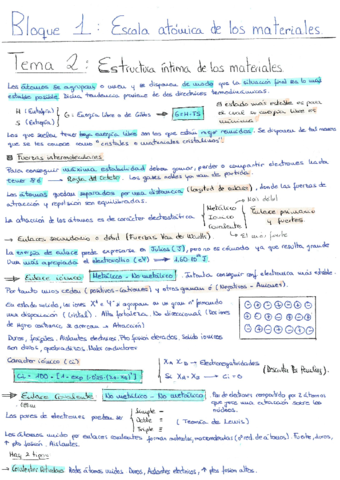 Bloque 1: Escala atómica de los materiales
Tema 2: Estructura íntima de los materiales
Los átomos se agrupan o unen y se disponen de modo que la situación final es la más
estable posible. Dicha tendencia proviene de las directrices termodinámicas.
H (Entalpía)
S (Entropía)
G: Energía libre o de Gibbs → G=H-TS
El estado más estable es para
el cual la energía libre es
mínima
Los que suelen tener baja energía libre son los que están mejor ordenados. Se disponen de tal manera
que se les conoce como "cristales o materiales cristalinos"
Fuerzas intermoleculares
Para conseguir máxima estabilidad deben ganar, perder o compartir electrones hasta
tener 8 e⁻ → Regla del Octeto. Los gases nobles ya van de partida.
Los átomos quedan separados por una distancia (longitud de enlace), donde las fuerzas de
atracción y repulsión son equilibradas.
La atracción de los átomos es de carácter electrostática
Metálico → Más débil
Iónico
Covalente
Enlace primario
y fuertes
→ El más fuerte
→ Enlaces secundarios o débil (Fuerzas Van de Waals)
La energía de enlace puede expresarse en Julios (J), pero no es adecuado ya que resulta grande
Una más apropiada el electrovoltio (eV)
→ Enlace iónico Metálicos - No metálico Intenta conseguir conf. electrónica más estable.
Por tanto unos ceden (positivos-cationes) y otros ganarán e⁻ (Negativos - Aniones).
En estado sólido, los iones X⁺ e Y⁻ se agrupan en un gran nº formando
una disposición (cristal). Alta fortaleza. No direccional (los iones
de signo contrario se acercan → Atracción)
Duros, frágiles, Aislantes eléctricos. Pto fusión elevados. Soluto iónicos
son duros, quebradizos. Malos conductores
Carácter iónico (ci)
Xa Xb → Electronegatividades
Si Xa = Xb → ci = 0
(Escala de Pauling).
→ Enlace Covalente No metálico - No metálico Par de electrones compartidos por 2 átomos
que ejerce una atracción sobre los
núcleos.
Los pares de electrones pueden ser
Simple -
Doble =
Triple ≡
(Teoría de Lewis)
Los átomos unidos por enlaces covalentes forman moléculas, macromoléculas (nº red de átomos). Fuerte, duros,
↑ pto fusión. Aislantes.
Hay 2 tipos
→ Covalentes Saturados Entre átomos unidos. Duros, Aislantes eléctricos, ↑ pto fusión altos.